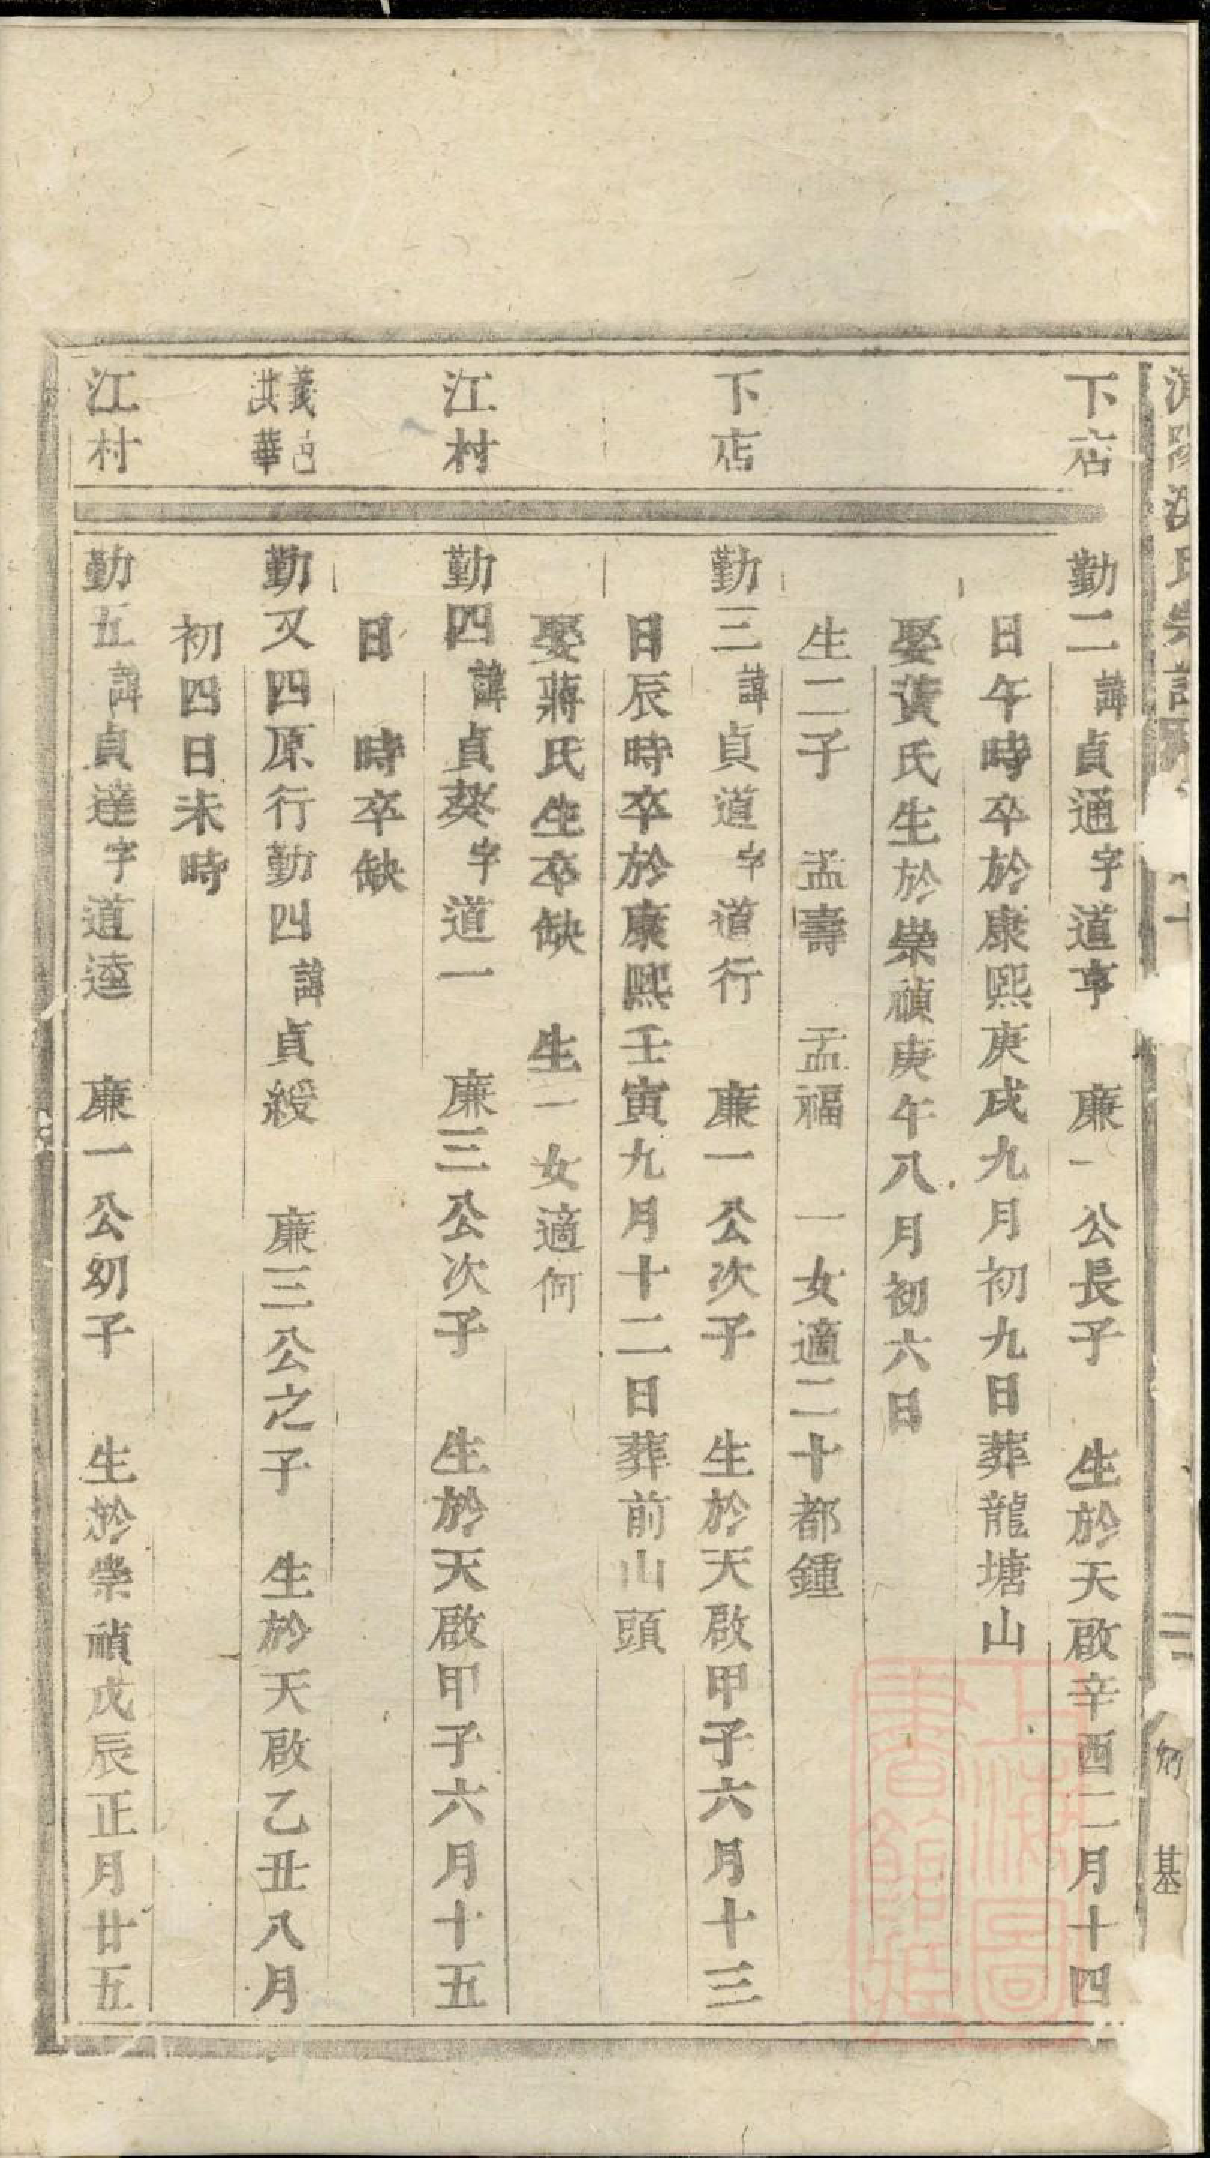 氏宗譜
基
下店
勤二諱貞通字道亨　廉一公長子　生於天啟辛酉二月十四
日午時卒於康熙庚戌九月初九日葬龍塘山
娶黃氏生於崇禎庚午八月初六日
生二子　孟壽　孟福　一女適二十都鍾
下店
勤三諱貞道字道行　廉一公次子　生於天啟甲子六月十三
日辰時卒於康熙壬寅九月十二日葬前山頭
娶蔣氏生卒缺　生一女適何
江村
勤四諱貞葵字道一　廉三公次子　生於天啟甲子六月十五
日　時卒缺
義邑
洪華
勤又四原行勤四諱貞綬　廉三公之子　生於天啟乙丑八月
初四日未時
江村
勤五諱貞達字道逵　廉一公幼子　生於崇禎戊辰正月廿五
上海圖
書館藏